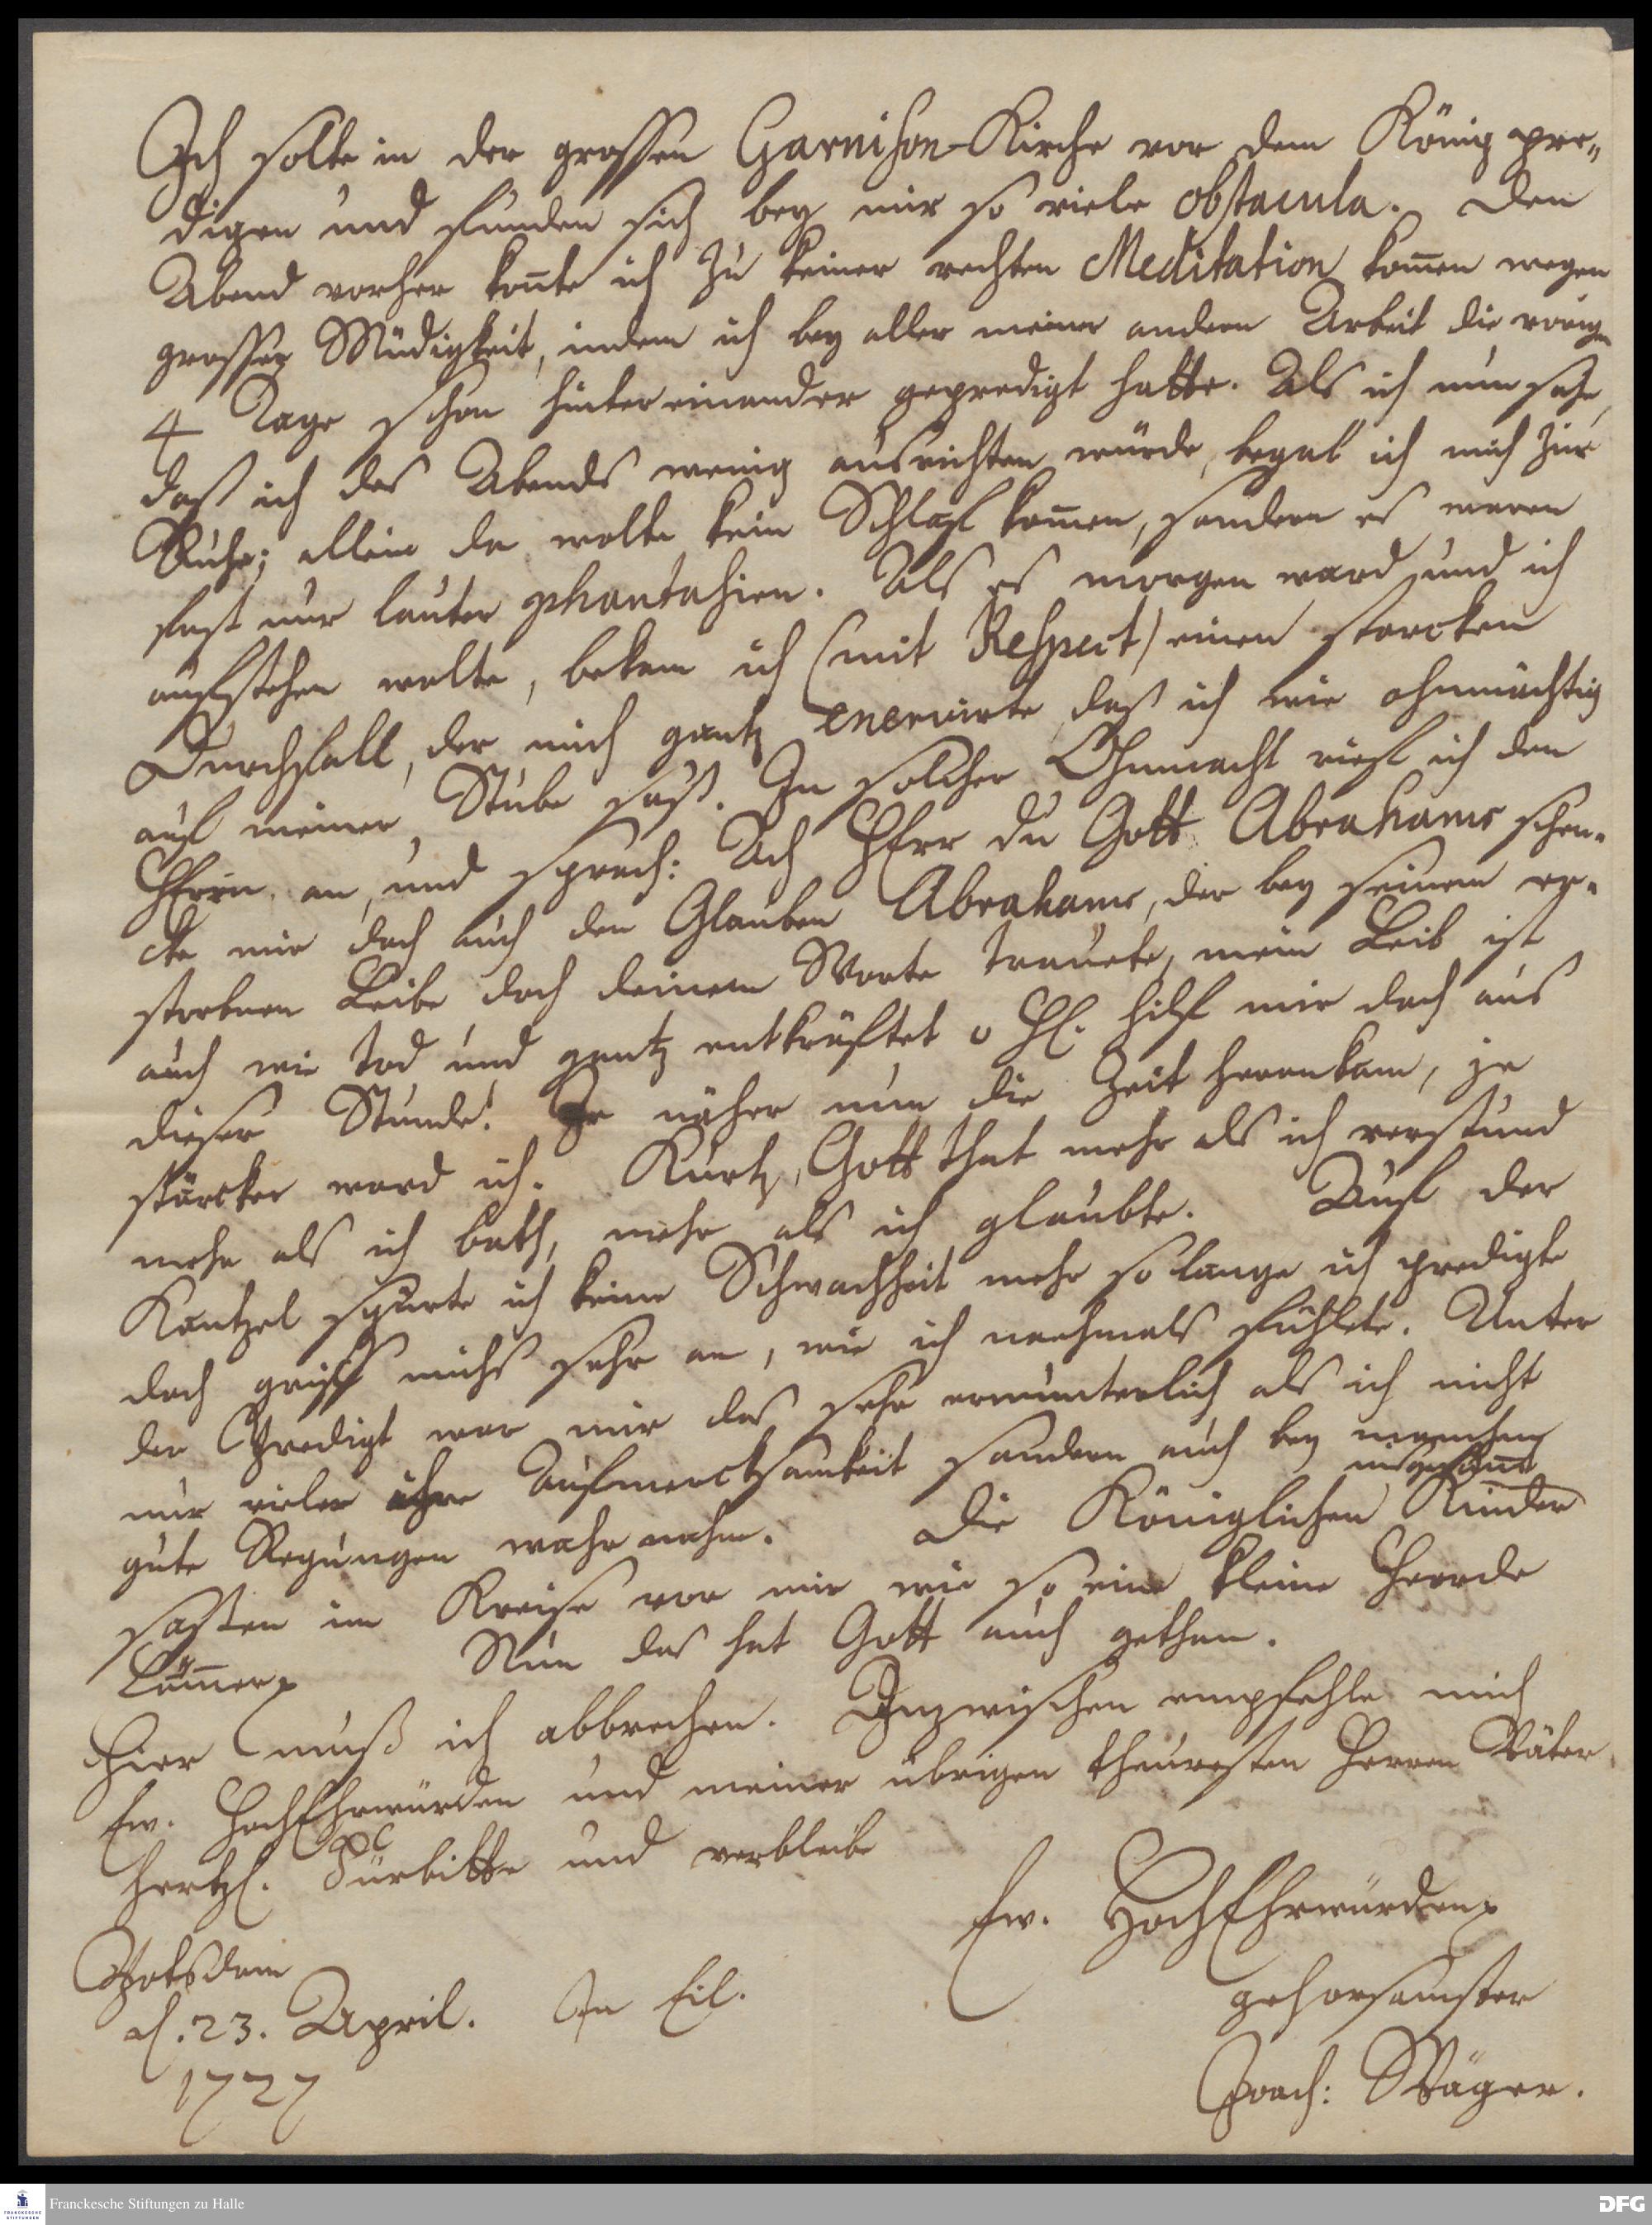 Ich solte in der grossen Garnison-Kirche vor dem König pre-
digen und funden sich bey mir so viele obstacula. Den
Abend vorher kon̄te ich zu keiner rechten Meditation kom̄en wegen
grosser Müdigkeit, indem ich bey aller meiner andern Arbeit die vorigen
4 Tage schon hintereinander gepredigt hatte. Als ich nun sahe,
daß ich des Abends wenig ausrichten würde, begab ich mich zur
Ruhe; allein da wolte kein Schlaf kom̄en, sondern es waren
fast nur lauter phantasien. Als es morgen ward und ich
aufstehen wolte, bekam ich (mit Respect) einen starcken
Durchfall, der mich gantz enervirte daß ich wie ohnmächtig
auf meiner Stube saß. In solcher Ohnmacht rief ich den
HErrn an, und sprach: Ach HErr du Gott Abrahams schen-
cke mir doch auch den Glauben Abrahams, der bey seinem er-
storbnen Leibe doch deinem Worte trauete, mein Leib ist
auch wie tod und gantz entkräftet o HE. hilf mir doch aus
dieser Stunde! Je näher nun die Zeit herankam, je
stärcker ward ich. Kurtz, Gott that mehr als ich verstund
mehr als ich bath, mehr als ich glaubte. Auf der
Kantzel spürte ich keine Schwachheit mehr so lange ich predigte
doch griff michs sehr an, wie ich nachmals fühlete. Unter
der Predigt war mir das sehr ermunterlich als ich nicht
nur vieler ihre Aufmercksamkeit sondern auch bey manchen
gute Regungen wahr nahm. Die Königlichen Kinder
sassen im Kreise vor mir wie so eine kleine Heerde
Läm̄er. Nun das hat Gott auch gethan.
Hier muß ich abbrechen. Inzwischen empfehle mich
Ew. HochEhrwürden und meiner übrigen theuresten Herren Väter
hertzl. Fürbitte und verbleibe
Ew. HochEhrwürden
Potsdam
d. 23. April. In Eil.
1727
gehorsamster
Joach: Wäger.
Franckesche Stiftungen zu Halle
DFG